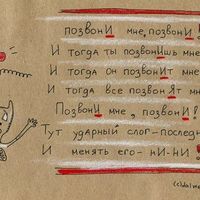 позвонИ мне, позвонИ!
И тогда ты позвонИшь мне
И тогда он позвонИт мне
И тогда все позвонЯт мн
ПозвонИ мне, позвонИ!
Тут ударный слог-последн
И менять его-нИ-нИ!